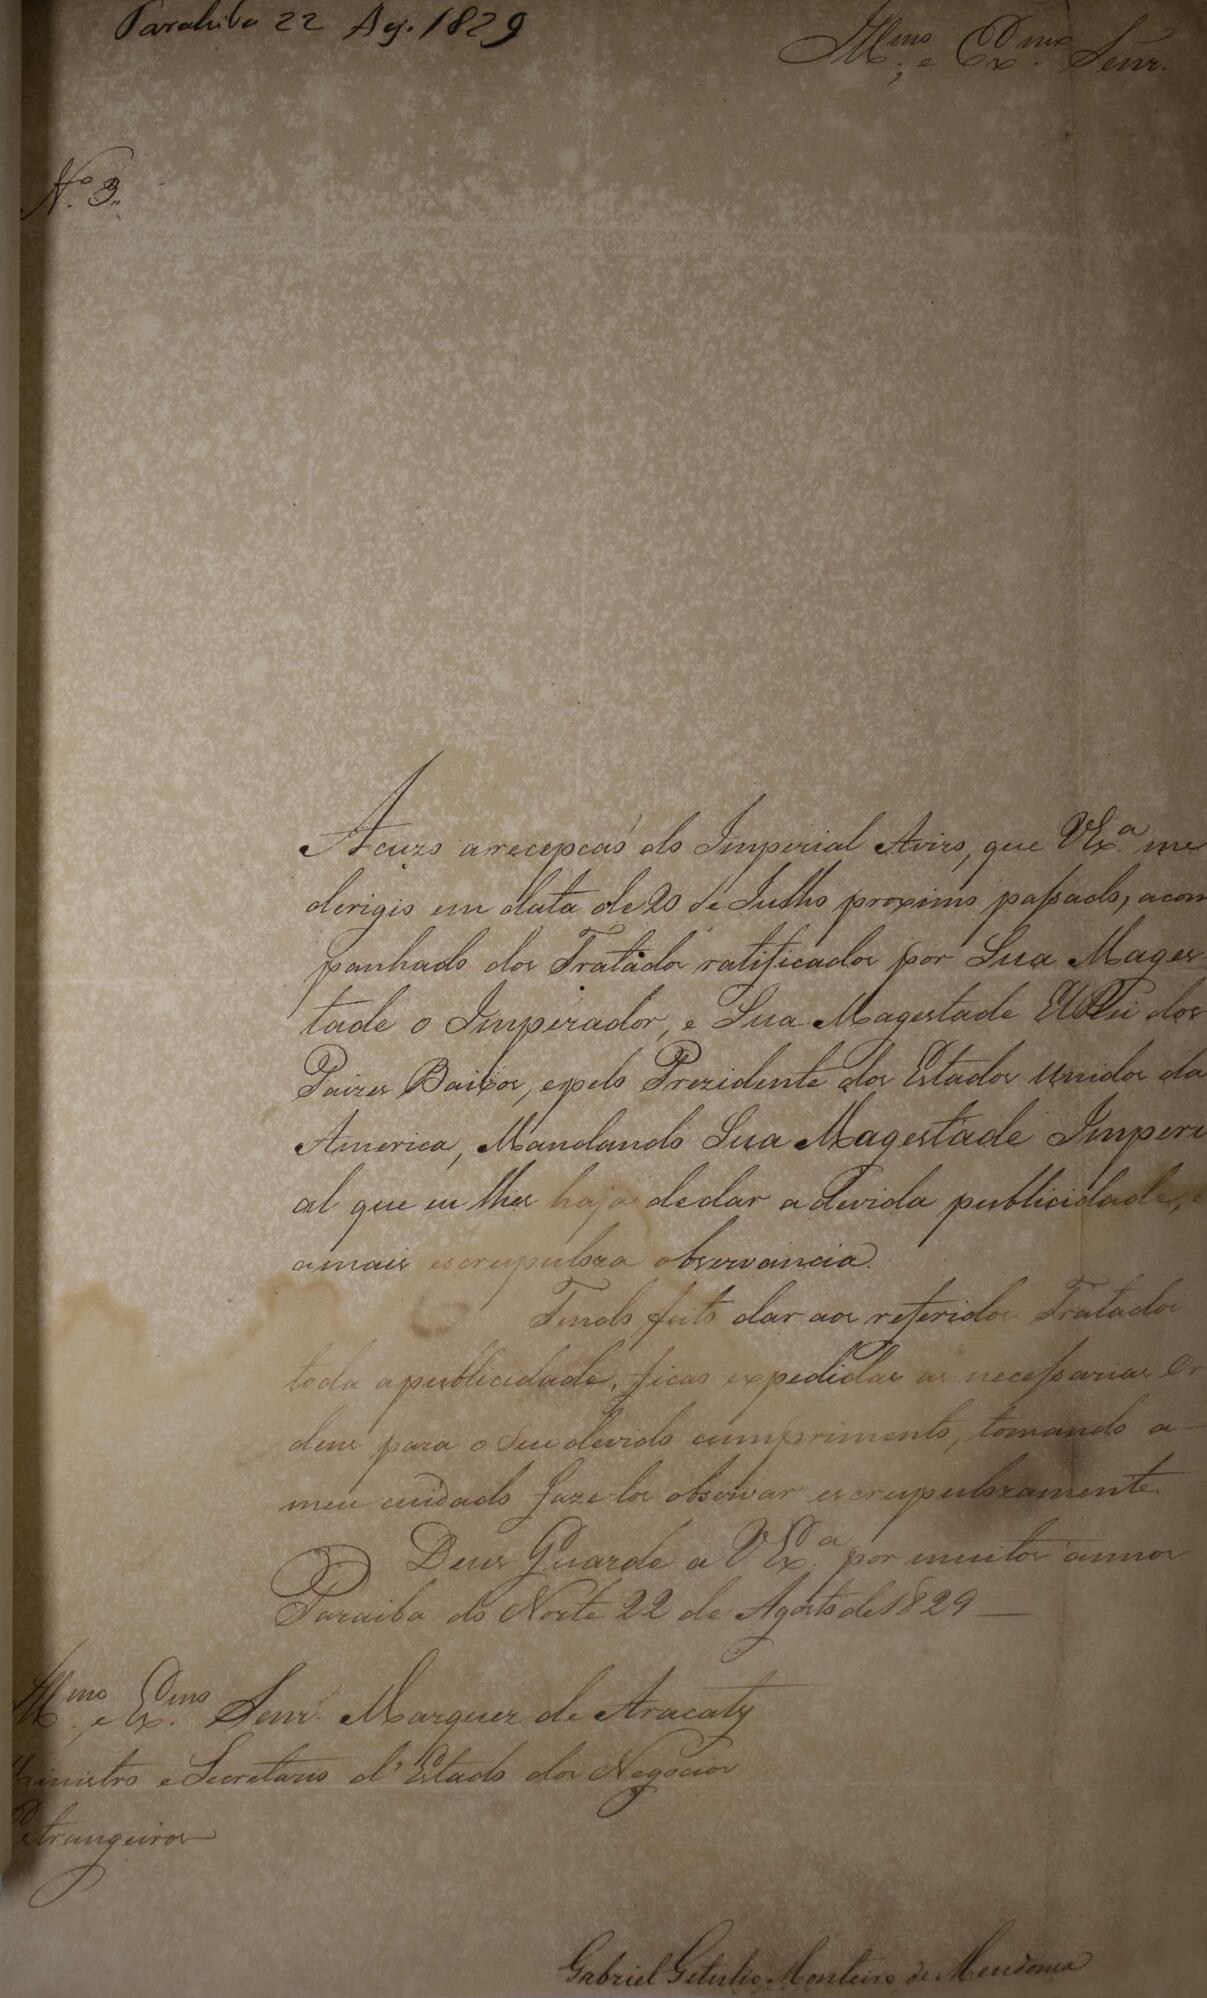 Parahiba 22 Ag. 1829
Ill.mo e Ex.mo Senr.
N.º 3.
Acuzo a recepcaõ do Imperial Avizo, que V Ex.a me
derigio em data de 20 de Julho proximo passado, acom
panhado dos Tratados ratificados por Sua Mages
tade o Imperador, e Sua Magestade ElRei dos
Paizes Baixos, e pelo Prezidente dos Estados Unidos da
America, Mandando Sua Magestade Imperi
al que eu lhes haja de dar a devida publicidade, e
a mais escrupuloza observancia.
Tendo feito dar aos referidos Tratados
toda a publicidade, ficao expedidas as necessarias Or
dens para o seu devido cumprimento, tomando a
meu cuidado faze-los observar escrupulozamente.
Deus Guarde a V Ex.a por muitos annos
Paraiba do Norte 22 de Agosto de 1829
Ill.mo e Ex.mo Senr. Marquez de Aracaty
Ministro e Secretario d'Estado dos Negocios
Estrangeiros
Gabriel Getulio Monteiro de Mendonca